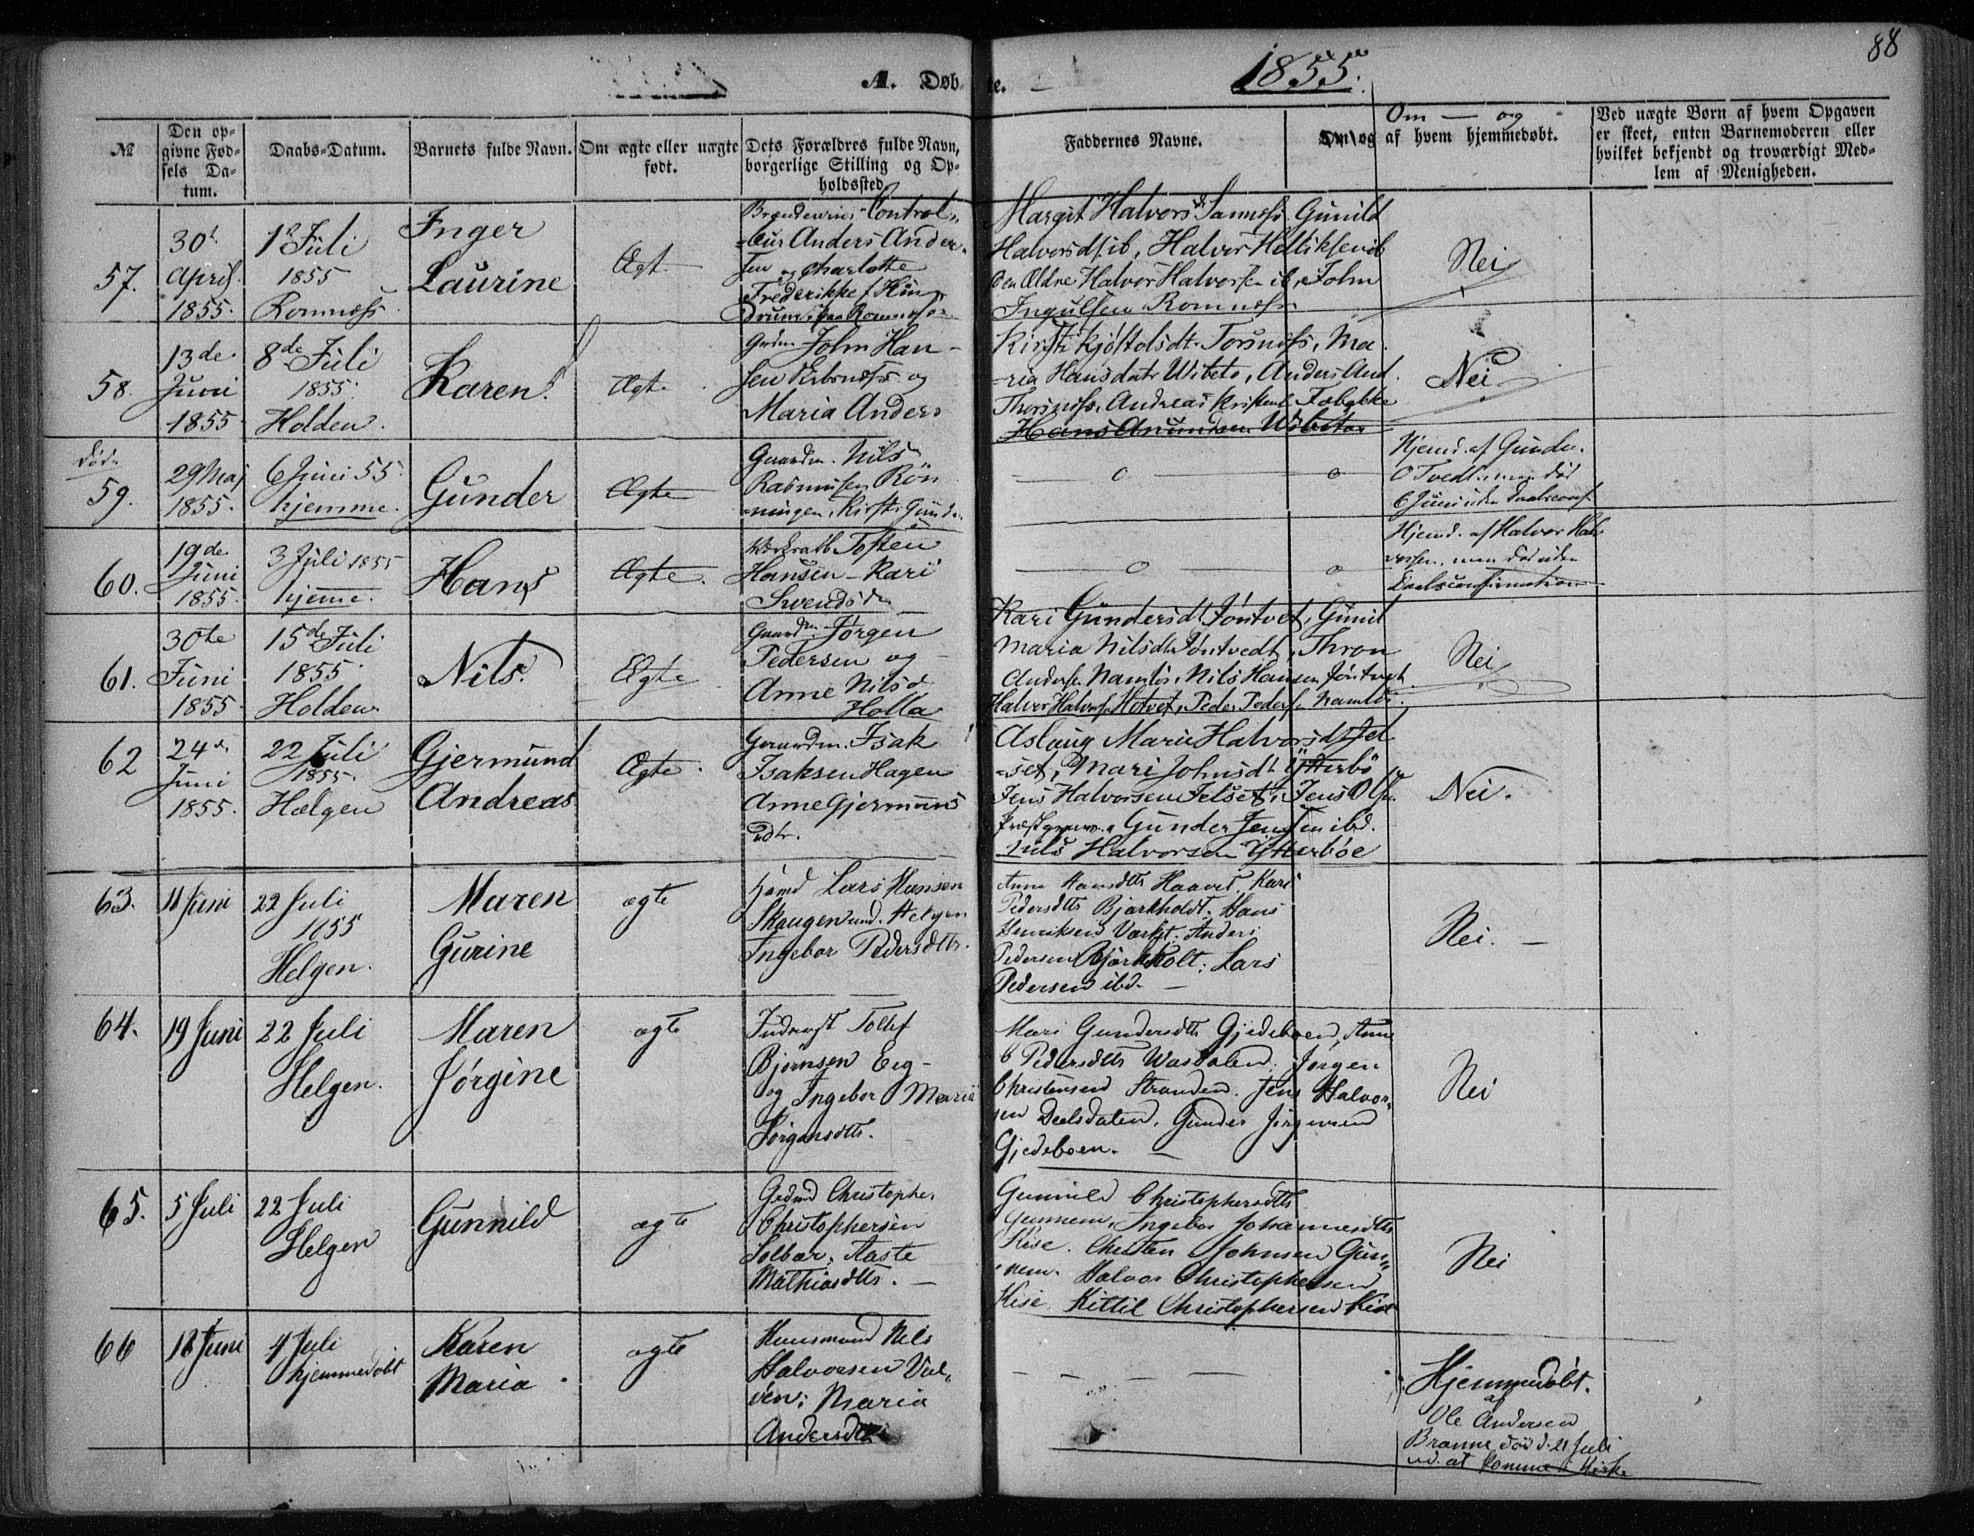 88
A. Døb- te. 1855.
№
Den op-
givne Fød-
sels Da-
tum.
Daabs-Datum.
Barnets fulde Navn.
Om ægte eller uægte
født.
Dets Forældres fulde Navn,
borgerlige Stilling og Op-
holdssted
Faddernes Navne.
Om — og
Om og af hvem hjemmedøbt.
Ved uægte Børn af hvem Opgaven
er skeet, enten Barnemoderen eller
hvilket bekjendt og troværdigt Med-
lem af Menigheden.
57.
30t
April
1855.
1 Juli
1855
Romnæss
Inger
Laurine
Ægt
Control-
eur Anders Ander-
sen og Charlotte
Frederikke
Romnæss
Margit Halvorsd Sannæss, Gunild
Halvorsdt ib, Halvor Helliksen ib
den Ældre Halvor Halvorsen ib, John
Ingulsen Romnæss
Nei
58.
13de
Juni
1855
8de Juli
1855.
Holden.
Karen.
Ægte
John Han-
sen og
Maria Anders
Kirsti Kjøstolsdt. Torsnæss, Ma-
ria Hansdatr Wibeto, Anders And.
Thorsnæss, Andreas
Hans Amundsen Wibeto
Nei
Død
59.
29 Maj
1855.
6 Juni 55.
hjemme.
Gunder
Ægte
Gaardm. Nils
Rasmusen Røn
ningen, Kirsti Gund
o o
Hjemd. af Gunder
O Tvedt, men død
6 Juni uden Daabsconf.
60.
19de
Juni
1855.
3 Juli 1855
hjemme.
Hans
Ægte.
Tosten
Hansen - Kari
Svendsd
o o
Hjemd. af Halvor Hal-
vorsen, men død uden
Daabsconfirmation
61.
30te
Juni
1855.
15de Juli
1855.
Holden
Nils.
Ægte
Gaardm. Jørgen
Pedersen og
Anne Nilsd
Holla
Kari Gundersdt Jøntvet, Gunil
Maria Nilsdt Jøntvedt, Thron
Anders Namløs, Nils Hansen Jøntvet
Halvor Halvors Hotvet, Peder Peders Namløs.
Nei
62
24de
Juni
1855.
22 Juli
1855.
Hælgen
Gjermund
Andreas
Ægte.
Gaardm. Isak
Isaksen Hagen
Anne Gjermuns
Dtr.
Aslaug Marie Halvorsdt Jel
set, Mari Johnsdt Ytterbö
Jens Halvorsen Jelset, Jens Ols.
Gunder Jensen ibd.
Nils Halvorsen Ytterböe
Nei.
63.
11 Juni
22 Juli
1855
Helgen.
Maren
Gurine
ægte
Lars Hansen
Skaugen und. Helgen
Ingebor Pedersdtr.
Anne Hansdtr Haavet. Kari
Pedersdtr Bjørkholdt. Hans
Henriksen Anders
Pedersen Bjørkholt; Lars
Pedersen ibd. —
Nei. —
64.
19 Juni
22 Juli
Helgen.
Maren
Jørgine
ægte
Inderst Tollef
Bjørnsen Eeg-
og Ingebor Marie
Jørgensdtr.
Mari Gundersdtr Gjedeboen, Anne
Pedersdtr Wasdalen. Jørgen
Christensen Stranden. Jens Halvor-
sen Deelsdalen. Gunder Jørgensen
Gjedeboen. —
Nei
65.
5 Juli
22 Juli
Helgen
Gunnild
ægte
Grdmd Christopher
Christophersen
Solbær; Aaste
Mathiasdtr. —
Gunnild Christophersdtr
Gunnem, Ingebor Johannesdtr
Kise. Christen Johnsen Gun-
nem. Halvor Christophersen
Kise. Kittil Christophersen Kise
Nei
66
18 Juni
4 Juli
hjemmedøbt
Karen
Maria
ægte
Huusmand Nils
Halvorsen Val-
den; Maria
Andersdtr
— — — —
Hjemmedøbt.
af
Ole Andersen
Brænne, død d. 21 Juli
ud. at komme i Kirke